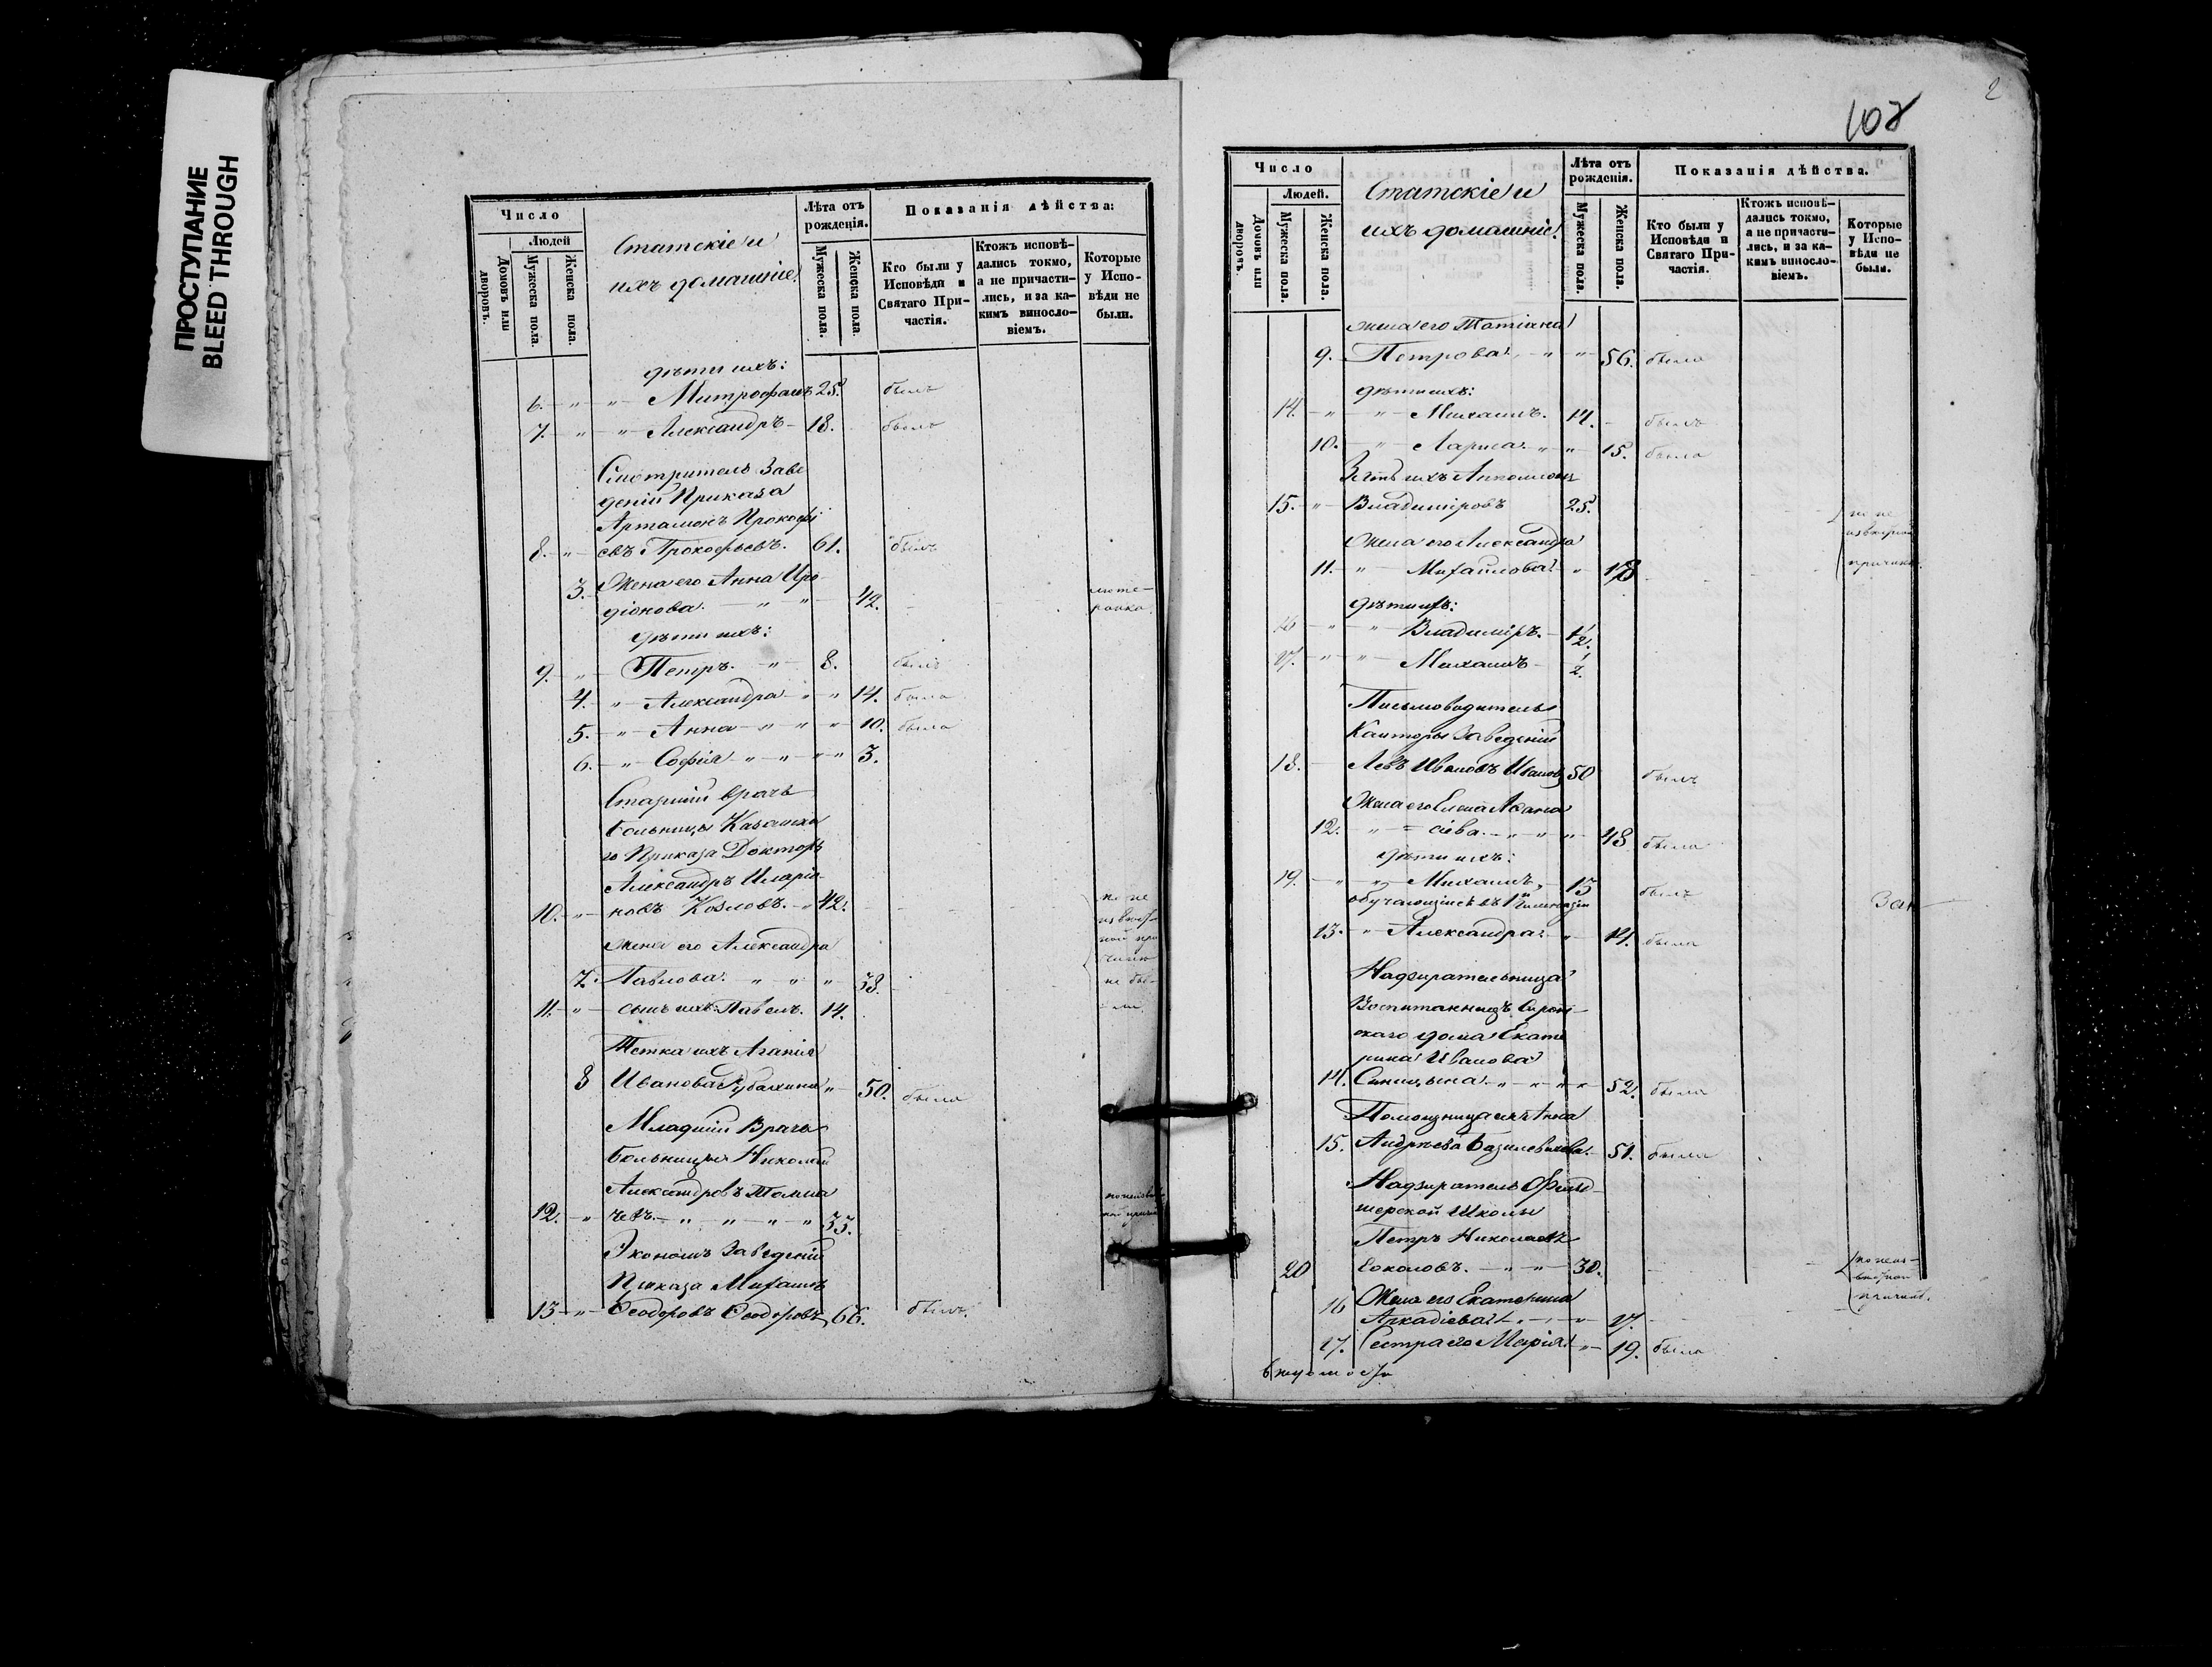 ПРОСТУПАНИЕ
BLEED THROUGH
Число
Людей
Домовъ или дворовъ.
Мужеска пола.
Женска пола.
Статскіе и
ихъ домашніе.
Лѣта отъ рожденія.
Мужеска пола.
Женска пола.
Показанія дѣйства:
Кто были у Исповѣди и Святаго Причастія.
Ктожъ исповѣдались токмо, а не причастились, и за какимъ винословіемъ.
Которые у Исповѣди не были.
дѣти ихъ:
6. - " - " - Митрофанъ 25. былъ
7. - " - " - Александръ - 18. былъ
Смотритель Заве
деній Приказа
Артамонъ Прокофі
8. - " - евъ Прокофьевъ. 61. былъ
3. Жена его Анна Иро
діонова. - " - " - 42. люте-
ранка.
дѣти ихъ:
9. - " - Петръ. - " - 8. былъ
4. - " - Александра - " - " 14. была
5. - " - Анна - " - " - " - 10. была
6. - " - Софія - " - " - " - " 3.
Старшій врачь
больницы Казанска
го Приказа Докторъ
Александръ Иларіо
10. - " - новъ Козловъ. - " 42. по не
извѣст-
жена его Александра ной при
чинѣ
7. Павлова. " " " 38. не бы-
11. - " - сынъ ихъ Павелъ. 14. ли.
Тетка ихъ Агапія
8 Иванова " - 50. была
Младшій Врачь
больницы Николай
Александровъ Толма
12. - " - чевъ. - " - " - " - " 33.
Экономъ Заведеній
Приказа Михаилъ
13 - " - Ѳеодоровъ Ѳеодоровъ 66. былъ.
2
108
Число
Людей.
Домовъ или дворовъ.
Мужеска пола.
Женска пола.
Статскіе и
ихъ домашніе.
Лѣта отъ рожденія.
Мужеска пола.
Женска пола.
Показанія дѣйства.
Кто были у Исповѣди и Святаго Причастія.
Ктожъ исповѣдались токмо, а не причастились, и за какимъ винословіемъ.
Которые у Исповѣди не были.
жена его Татіана
9. - Петрова. - " - " - 56. была
дѣти ихъ:
14. - " - " - Михаилъ. 14. - былъ
10. - " - Лариса - " - " - 15. была
Зять ихъ
15. - " - Владиміровъ 25. по не
извѣстной
Жена его Александра
11. - " - Михайлова. - " - 18 причинѣ.
дѣти ихъ:
16 - " - " - Владиміръ. - 1½.
17. - " - " - Михаилъ - ½.
Письмоводитель
Канторы Заведеній
18. Левъ Ивановъ Ивановъ 50 былъ
Жена его Елена Аѳана
12. - " - = сіева. - " - " - " - 48 была
дѣти ихъ:
19. - " - " - Михаилъ, 15 былъ
обучающійся въ 1й Гимназіи
13. - " - Александра. - " - 14. была
Надзирательница
Воспитанницъ Сирот-
скаго дома Екате
рина Иванова
14. Синицына. - " - " - " - " - 52. была
Помощница ихъ Анна
15. Андреева Базилевичева. - 51. была
Надзиратель Фельд-
шерской Школы
Петръ Николаевъ
20 Соколовъ. - " - " - 30. по неиз-
вѣстной
16 Жена его Екатерина причинѣ.
Аркадіева. - " - " - " - 27.
17. Сестра его Марія - " - 19. была